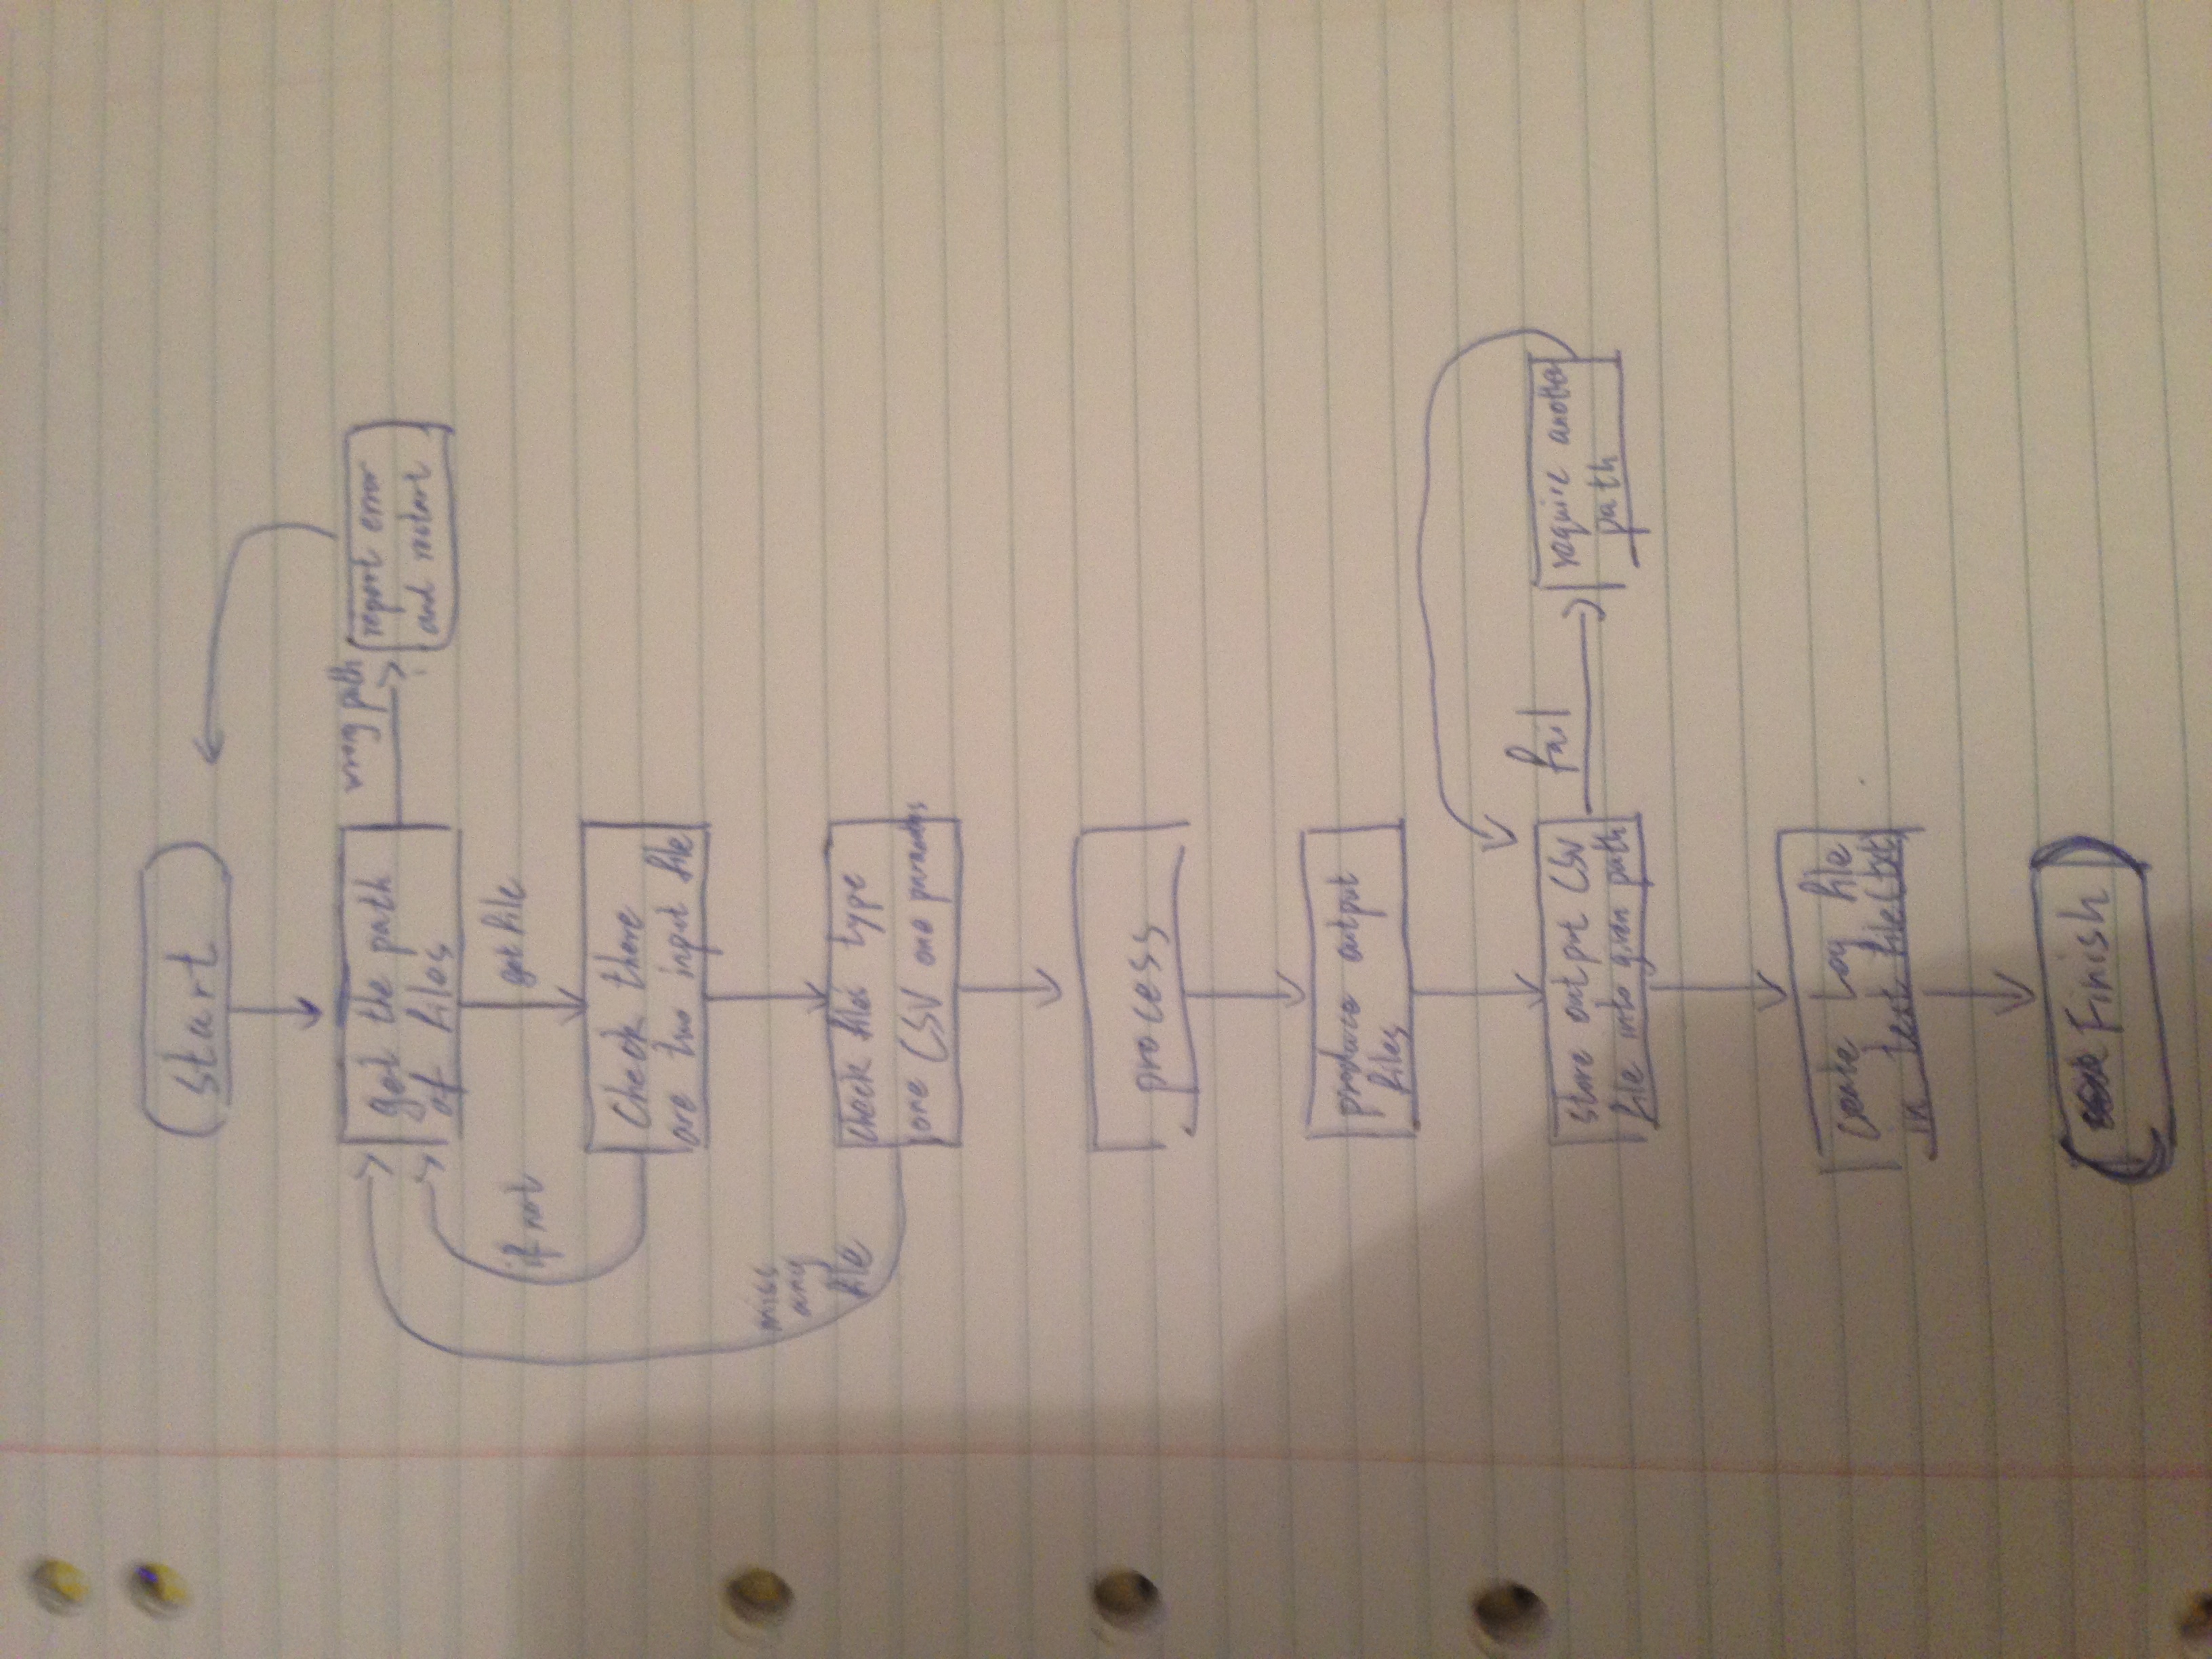 start
get the path
of files
wrong path
report error
and restart
if not
got file
Check there
are two input file
miss
any
file
check files type
one CSV one
process
produce output
files
store output CSV
file into given path
fail
require another
path
create Log file
in text file (txt)
Finish